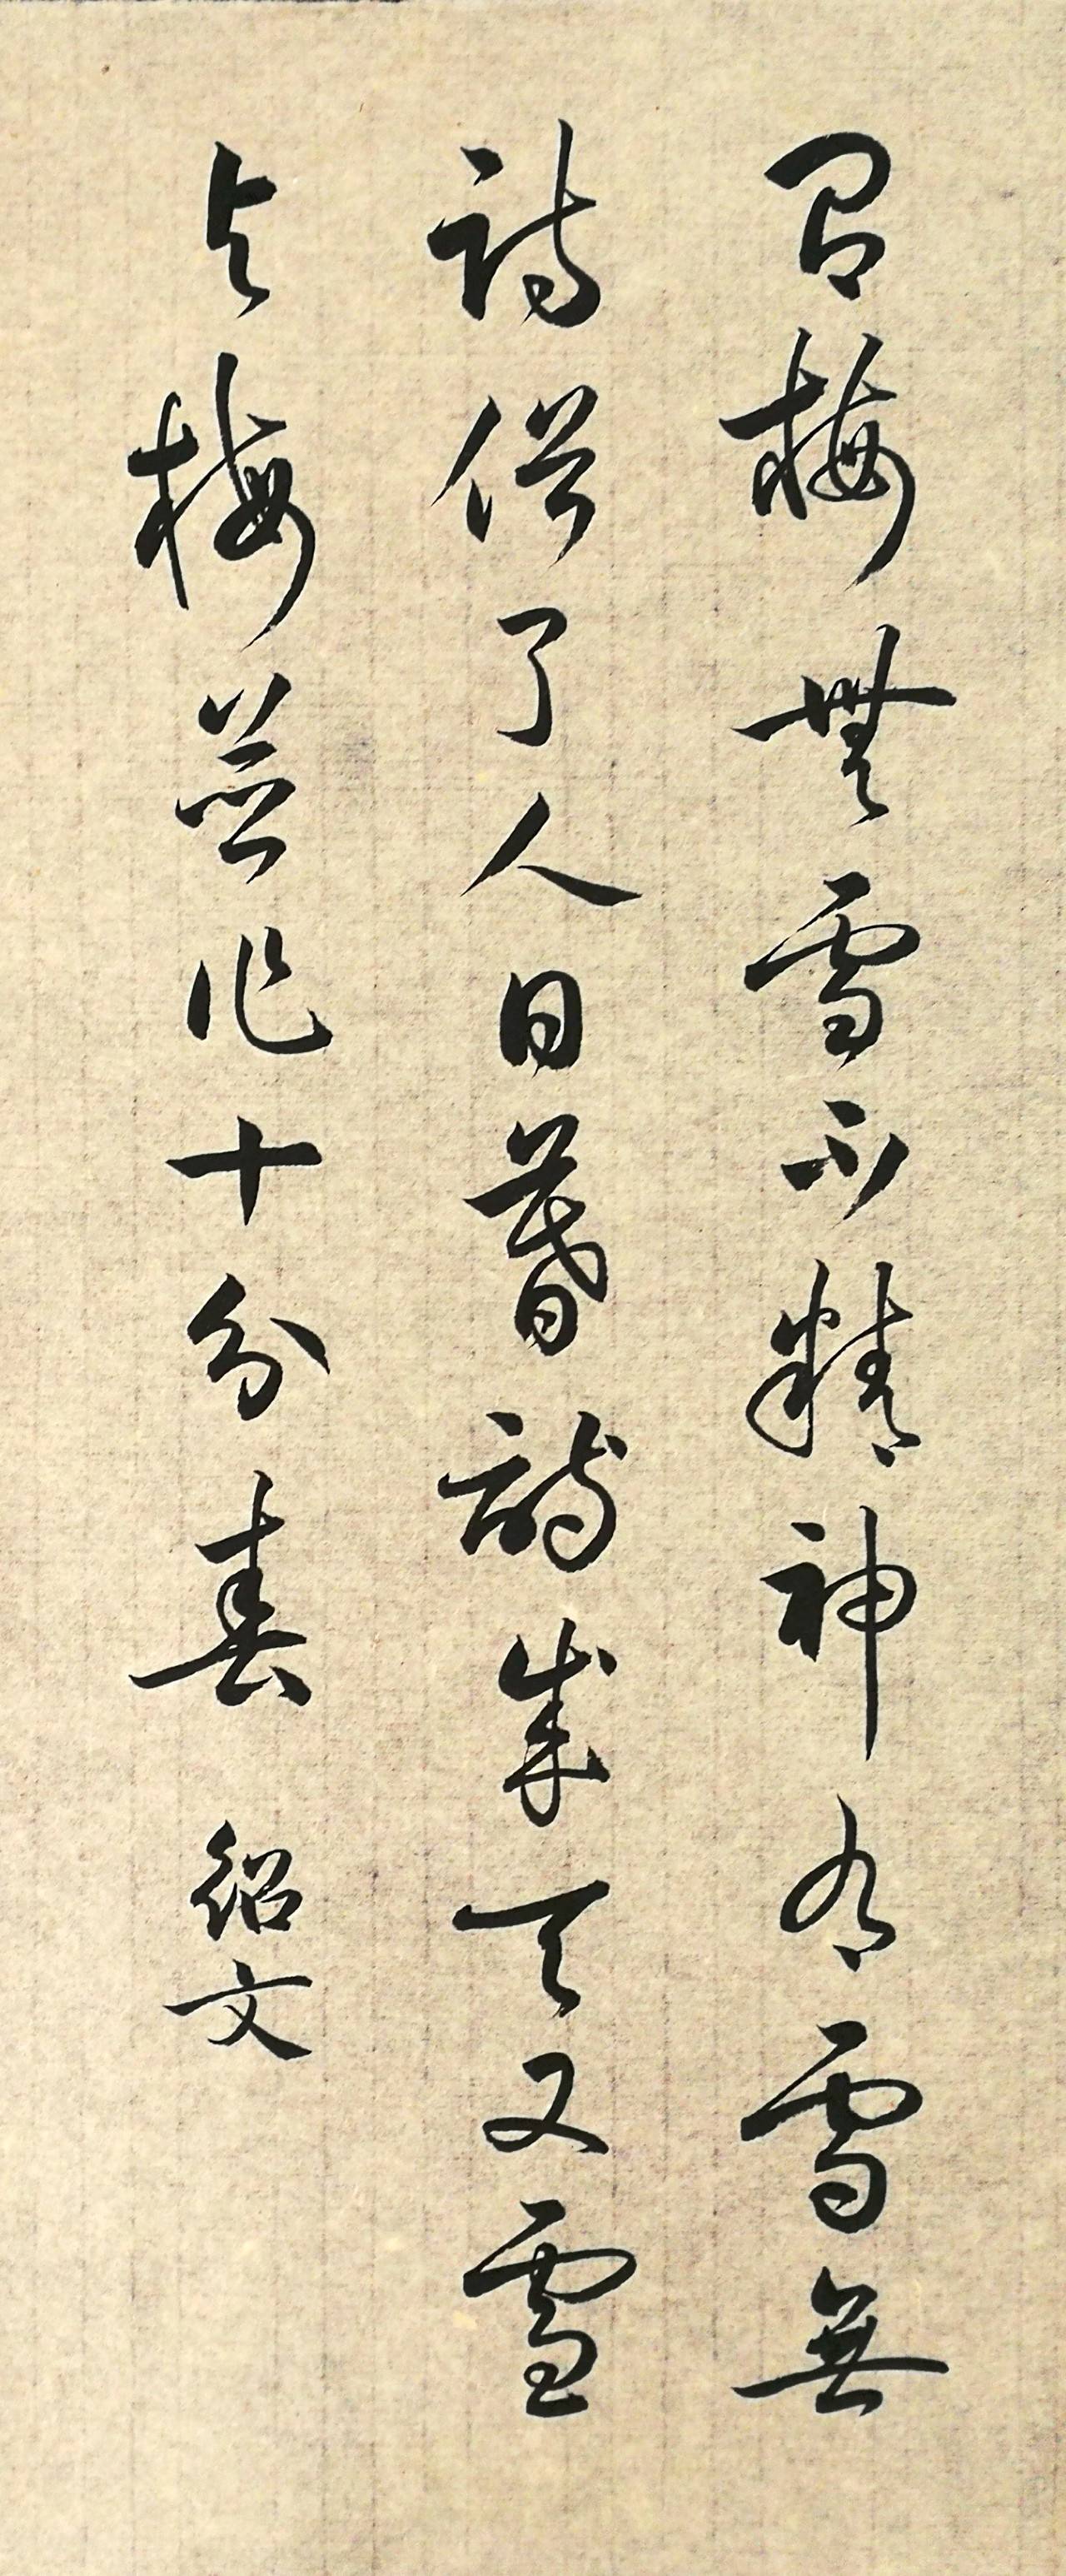 有梅無雪不精神有雪無
詩俗了人日暮詩成天又雪
与梅並作十分春 紹文